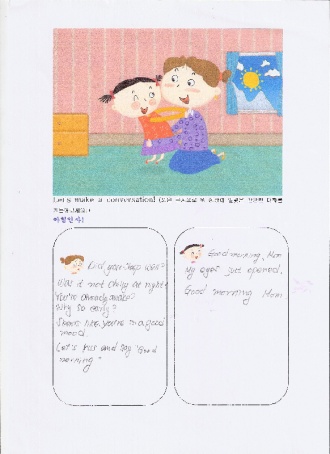 Let's make a conversation!
아침인사!
Did you sleep well?
Was it not chilly at night?
You're already awake?
Why so early?
Seems like you're in a good
mood.
Let's kiss and say "Good
morning"
Good morning, Mom
My eyes just opened.
Good morning Mom